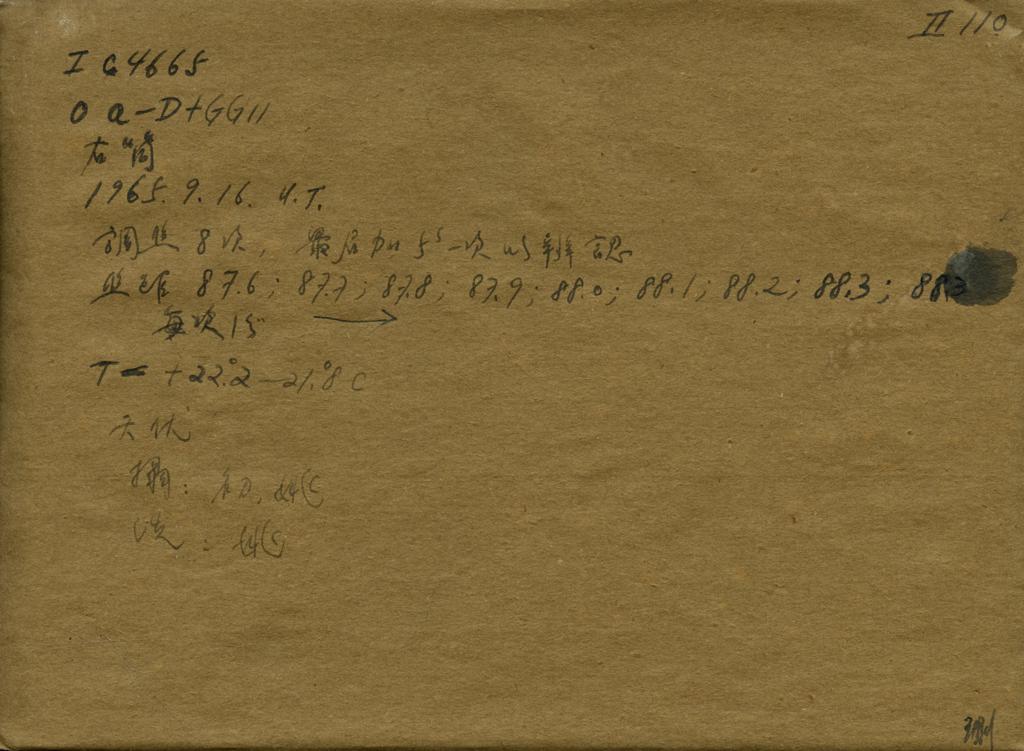 II 110
IC4665
Oa-D+GG11
右筒
1965. 9. 16. U.T.
調焦 8次, 最后加 5ˢ 一次 以辨認
焦距 87.6; 87.7; 87.8; 87.9; 88.0; 88.1; 88.2; 88.3; 88.3
每次15ˢ →
T= +22°.2—21°.8 C
天优
攝: 初, 姚
洗: 姚